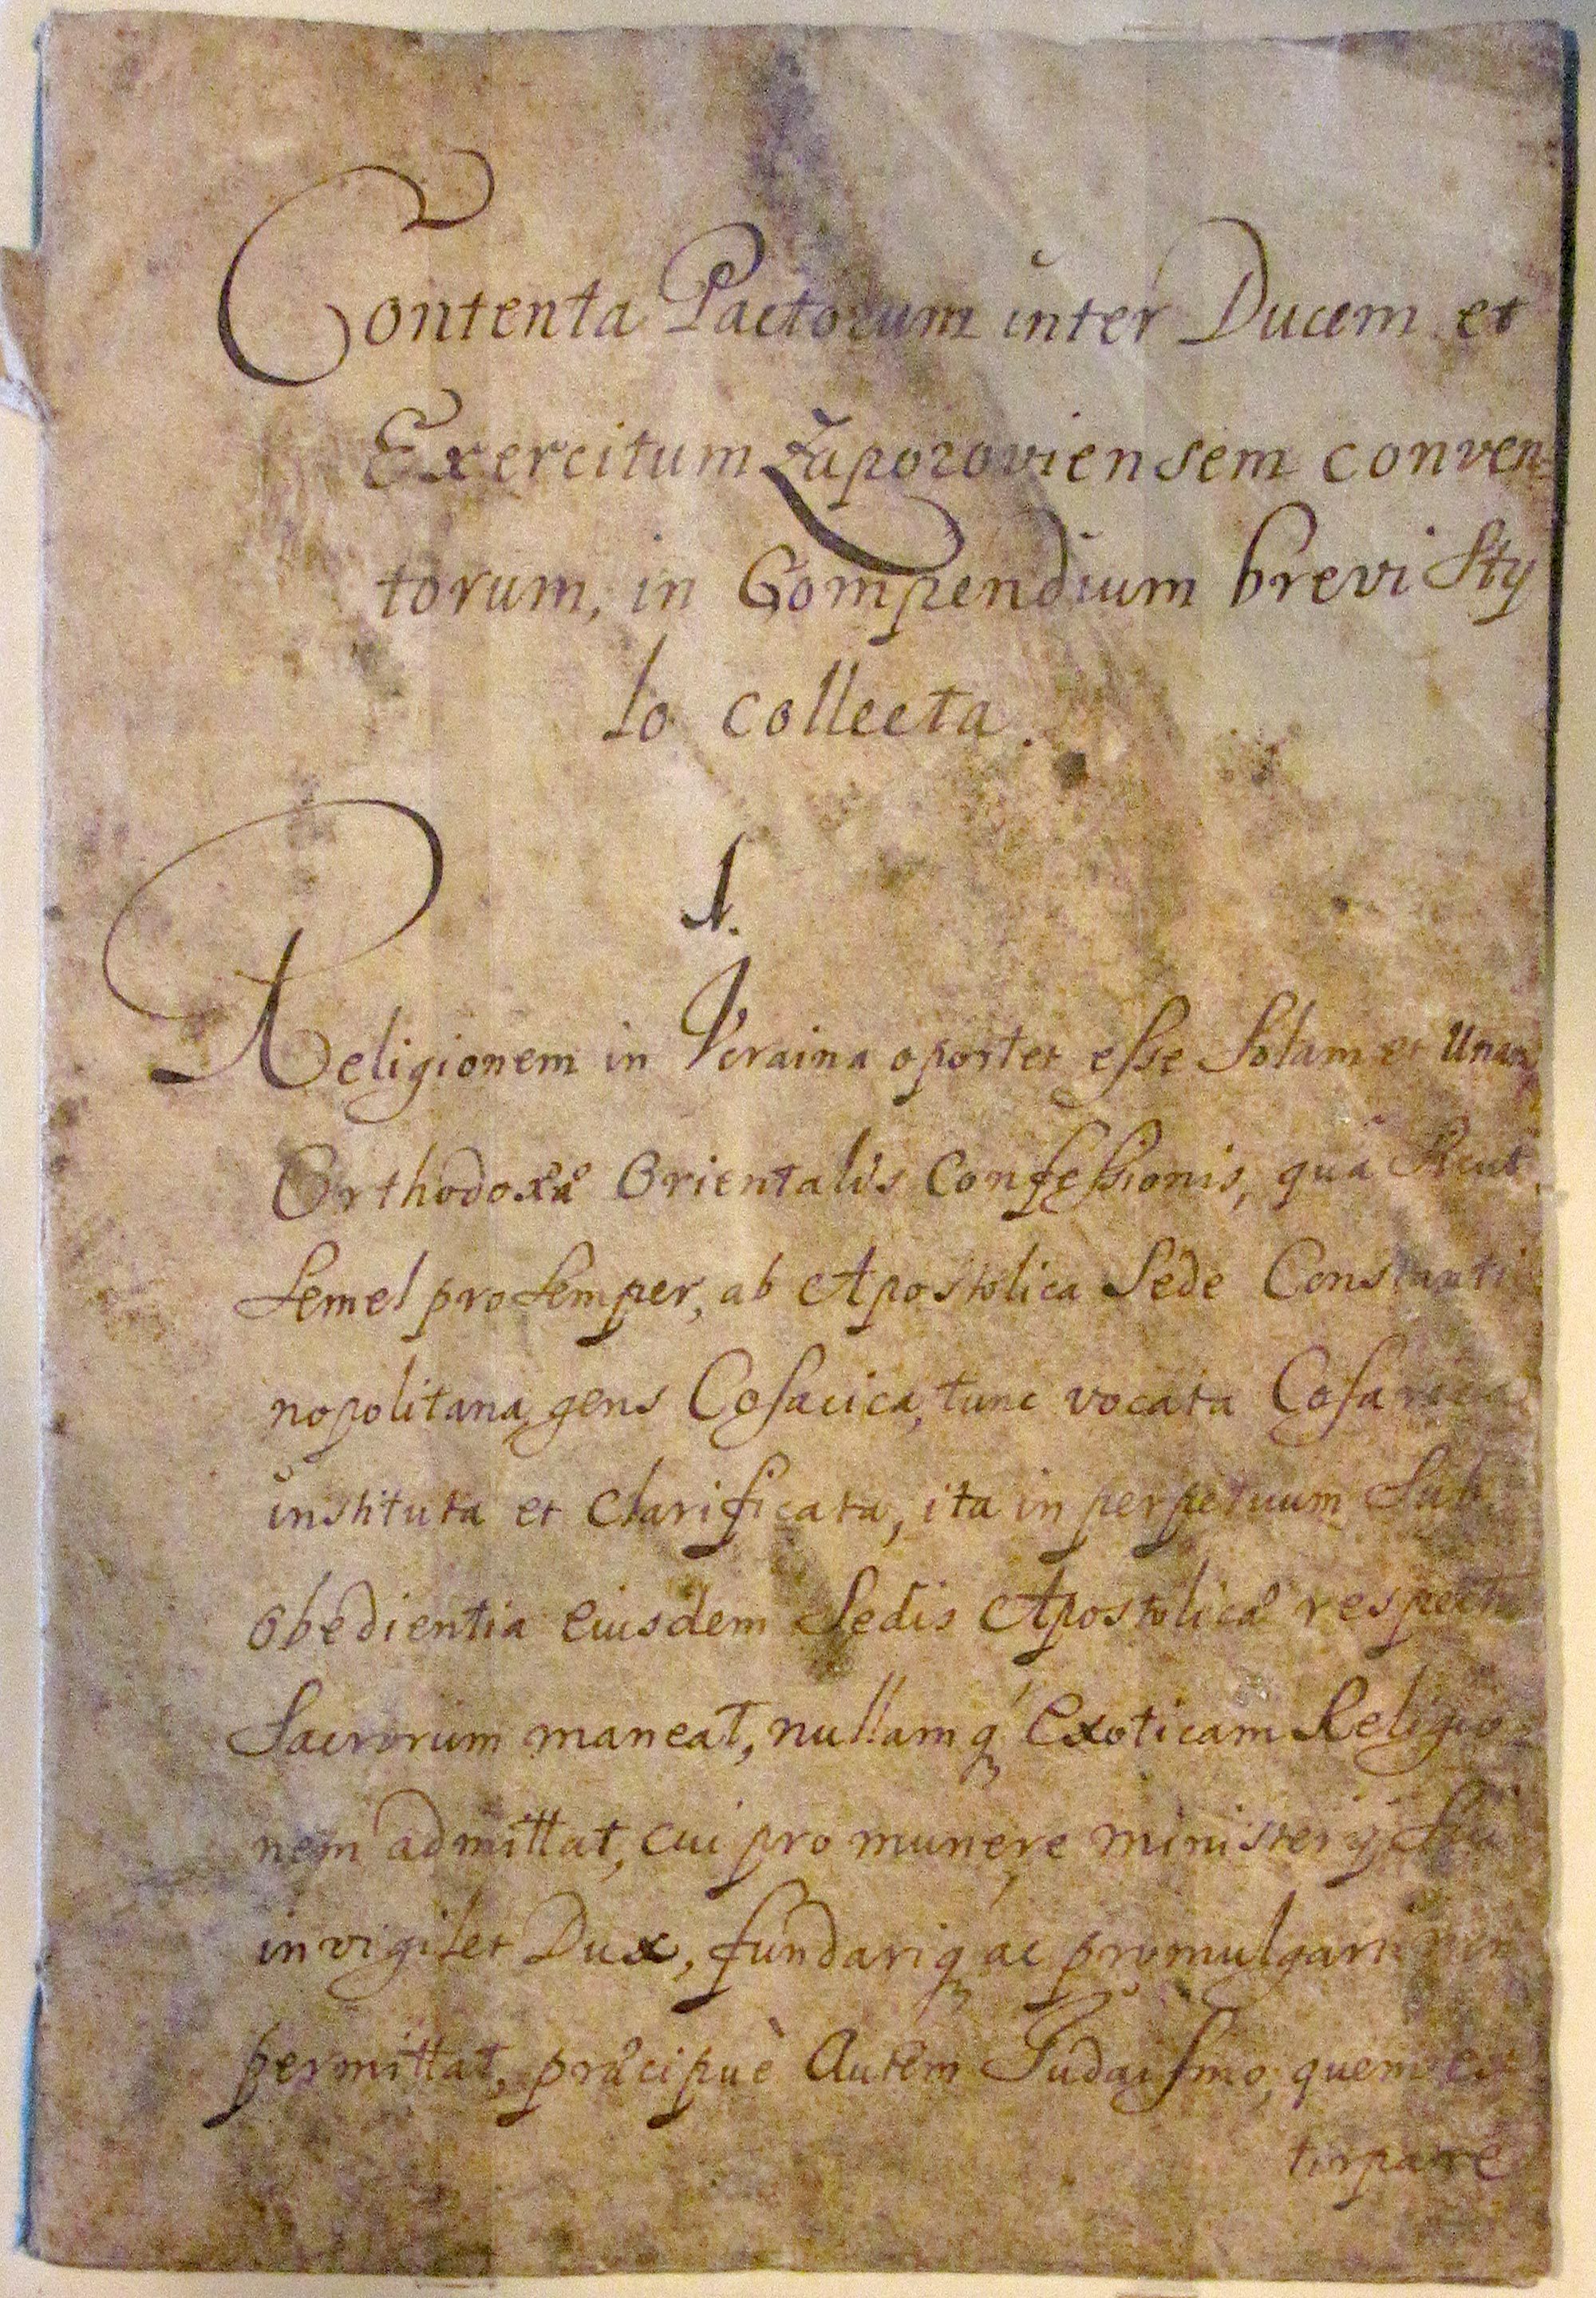 Contenta Pactorum inter Ducem et
Exercitum Zaporoviensem conven-
torum, in Compendium brevi Sty
lo collecta.
1.
Religionem in Vcraina oportet esse Solam et Unam
Orthodoxæ Orientalis Confessionis, quâ Sicut
Semel pro Semper, ab Apostolica Sede Constanti
nopolitana, gens Cosacica, tunc vocata Cosarica
instituta et Clarificata, ita in perpetuum Sub
Obedientia Eiusdem Sedis Apostolicæ respectu
Sacrorum maneat, nullamq́ Exoticam Religio-
nem admittat, cui pro munere ministerij Sui
invigilet Dux, fundariq́ ac promulgari non
permittat, præcipuè Autem Judaismo, quem ex
tirpare